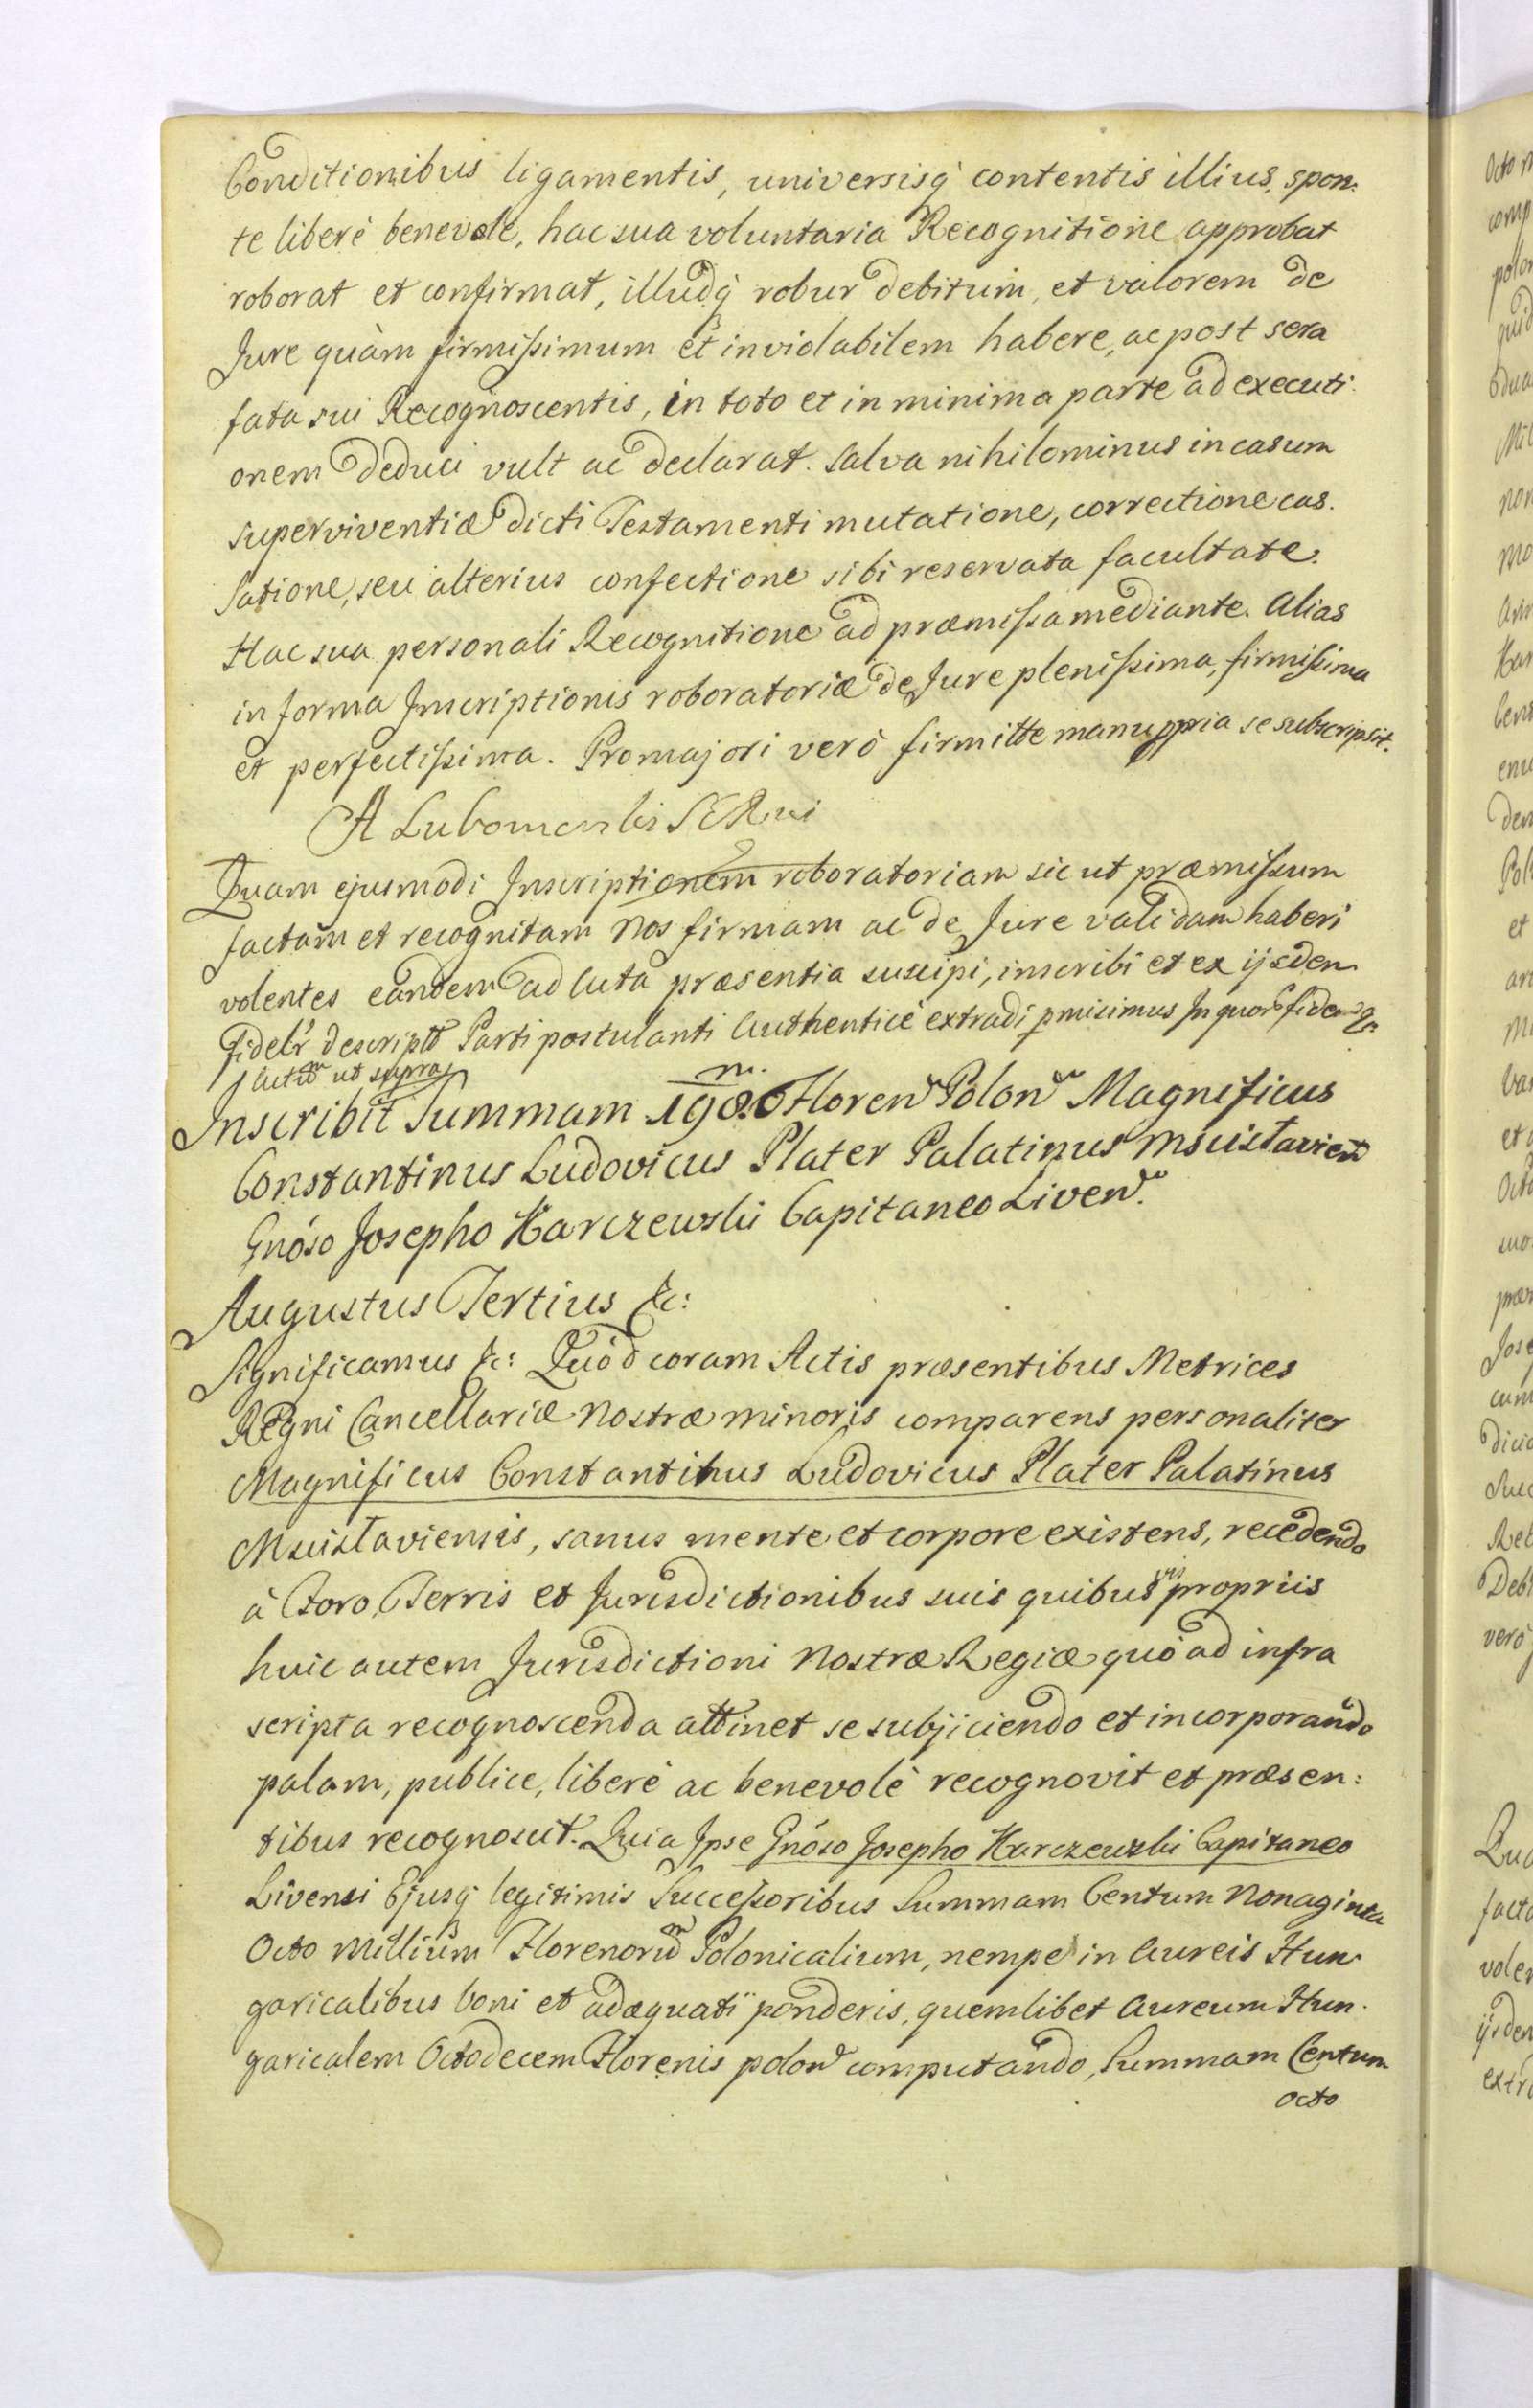 Conditionibus ligamentis, universisq́ contentis illius, spon:
te liberè benevole, hac sua voluntaria Recognitione approbat
roborat et confirmat, illudq́ robur debitum, et valorem de
Jure quàm firmissimum et inviolabilem habere, ac post sera
fata sui Recognoscentis, in toto et in minima parte ad executi
onem deduci vult ac declarat. Salva nihilominus in casum
superviventiæ dicti Testamenti mutatione, correctione cas.
satione, seu alterius confectione sibi reservata facultate.
Hac sua personali Recognitione ad præmissa mediante. Alias
in forma Inscriptionis roboratoriæ de Jure plenissima, firmissima
et perfectissima. Pro majori verò firmitte manu ppria se subscripsit.
A Lubomirski
Quam ejusmodi Inscriptionem roboratoriam sic ut præmissum
factam et recognitam Nos firmam ac de Jure validam haberi
volentes eandem ad Acta præsentia suscipi, inscribi et ex ijsdem
fidelr descriptã Parti postulanti Authenticè extradi pmisimus In quor fidem &c
Actũ ut supra
Inscribit Summam 198.m 0 Floren Polon Magnificus
Constantinus Ludovicus Plater Palatinus Mscislavien
Gnóso Josepho Karczewski Capitaneo Liven.
Augustus Tertius &c:
Significamus &c: Quód coram Actis præsentibus Metrices
Regni Cancellariæ Nostræ minoris comparens personaliter
Magnificus Constantinus Ludovicus Plater Palatinus
Mscislaviensis, sanus mente et corpore existens, recedendo
à Foro, Terris et Jurisdictionibus suis quibusvis propriis
huic autem Jurisdictioni Nostræ Regiæ quó ad infra
scripta recognoscenda attinet se subjiciendo et incorporando
palam, publice, liberè ac benevolè recognovit et præsen:
tibus recognoscit. Quia Ipse Gnóso Josepho Karczewski Capitaneo
Livensi Ejusq́ legitimis Successoribus Summam Centum Nonaginta
Octo Millium Florenorum Polonicalium, nempe in Aureis Hun
garicalibus boni et adæquati ponderis, quemlibet Aureum Hun.
garicalem Octodecem Florenis polon computando, Summam Centum
Octo